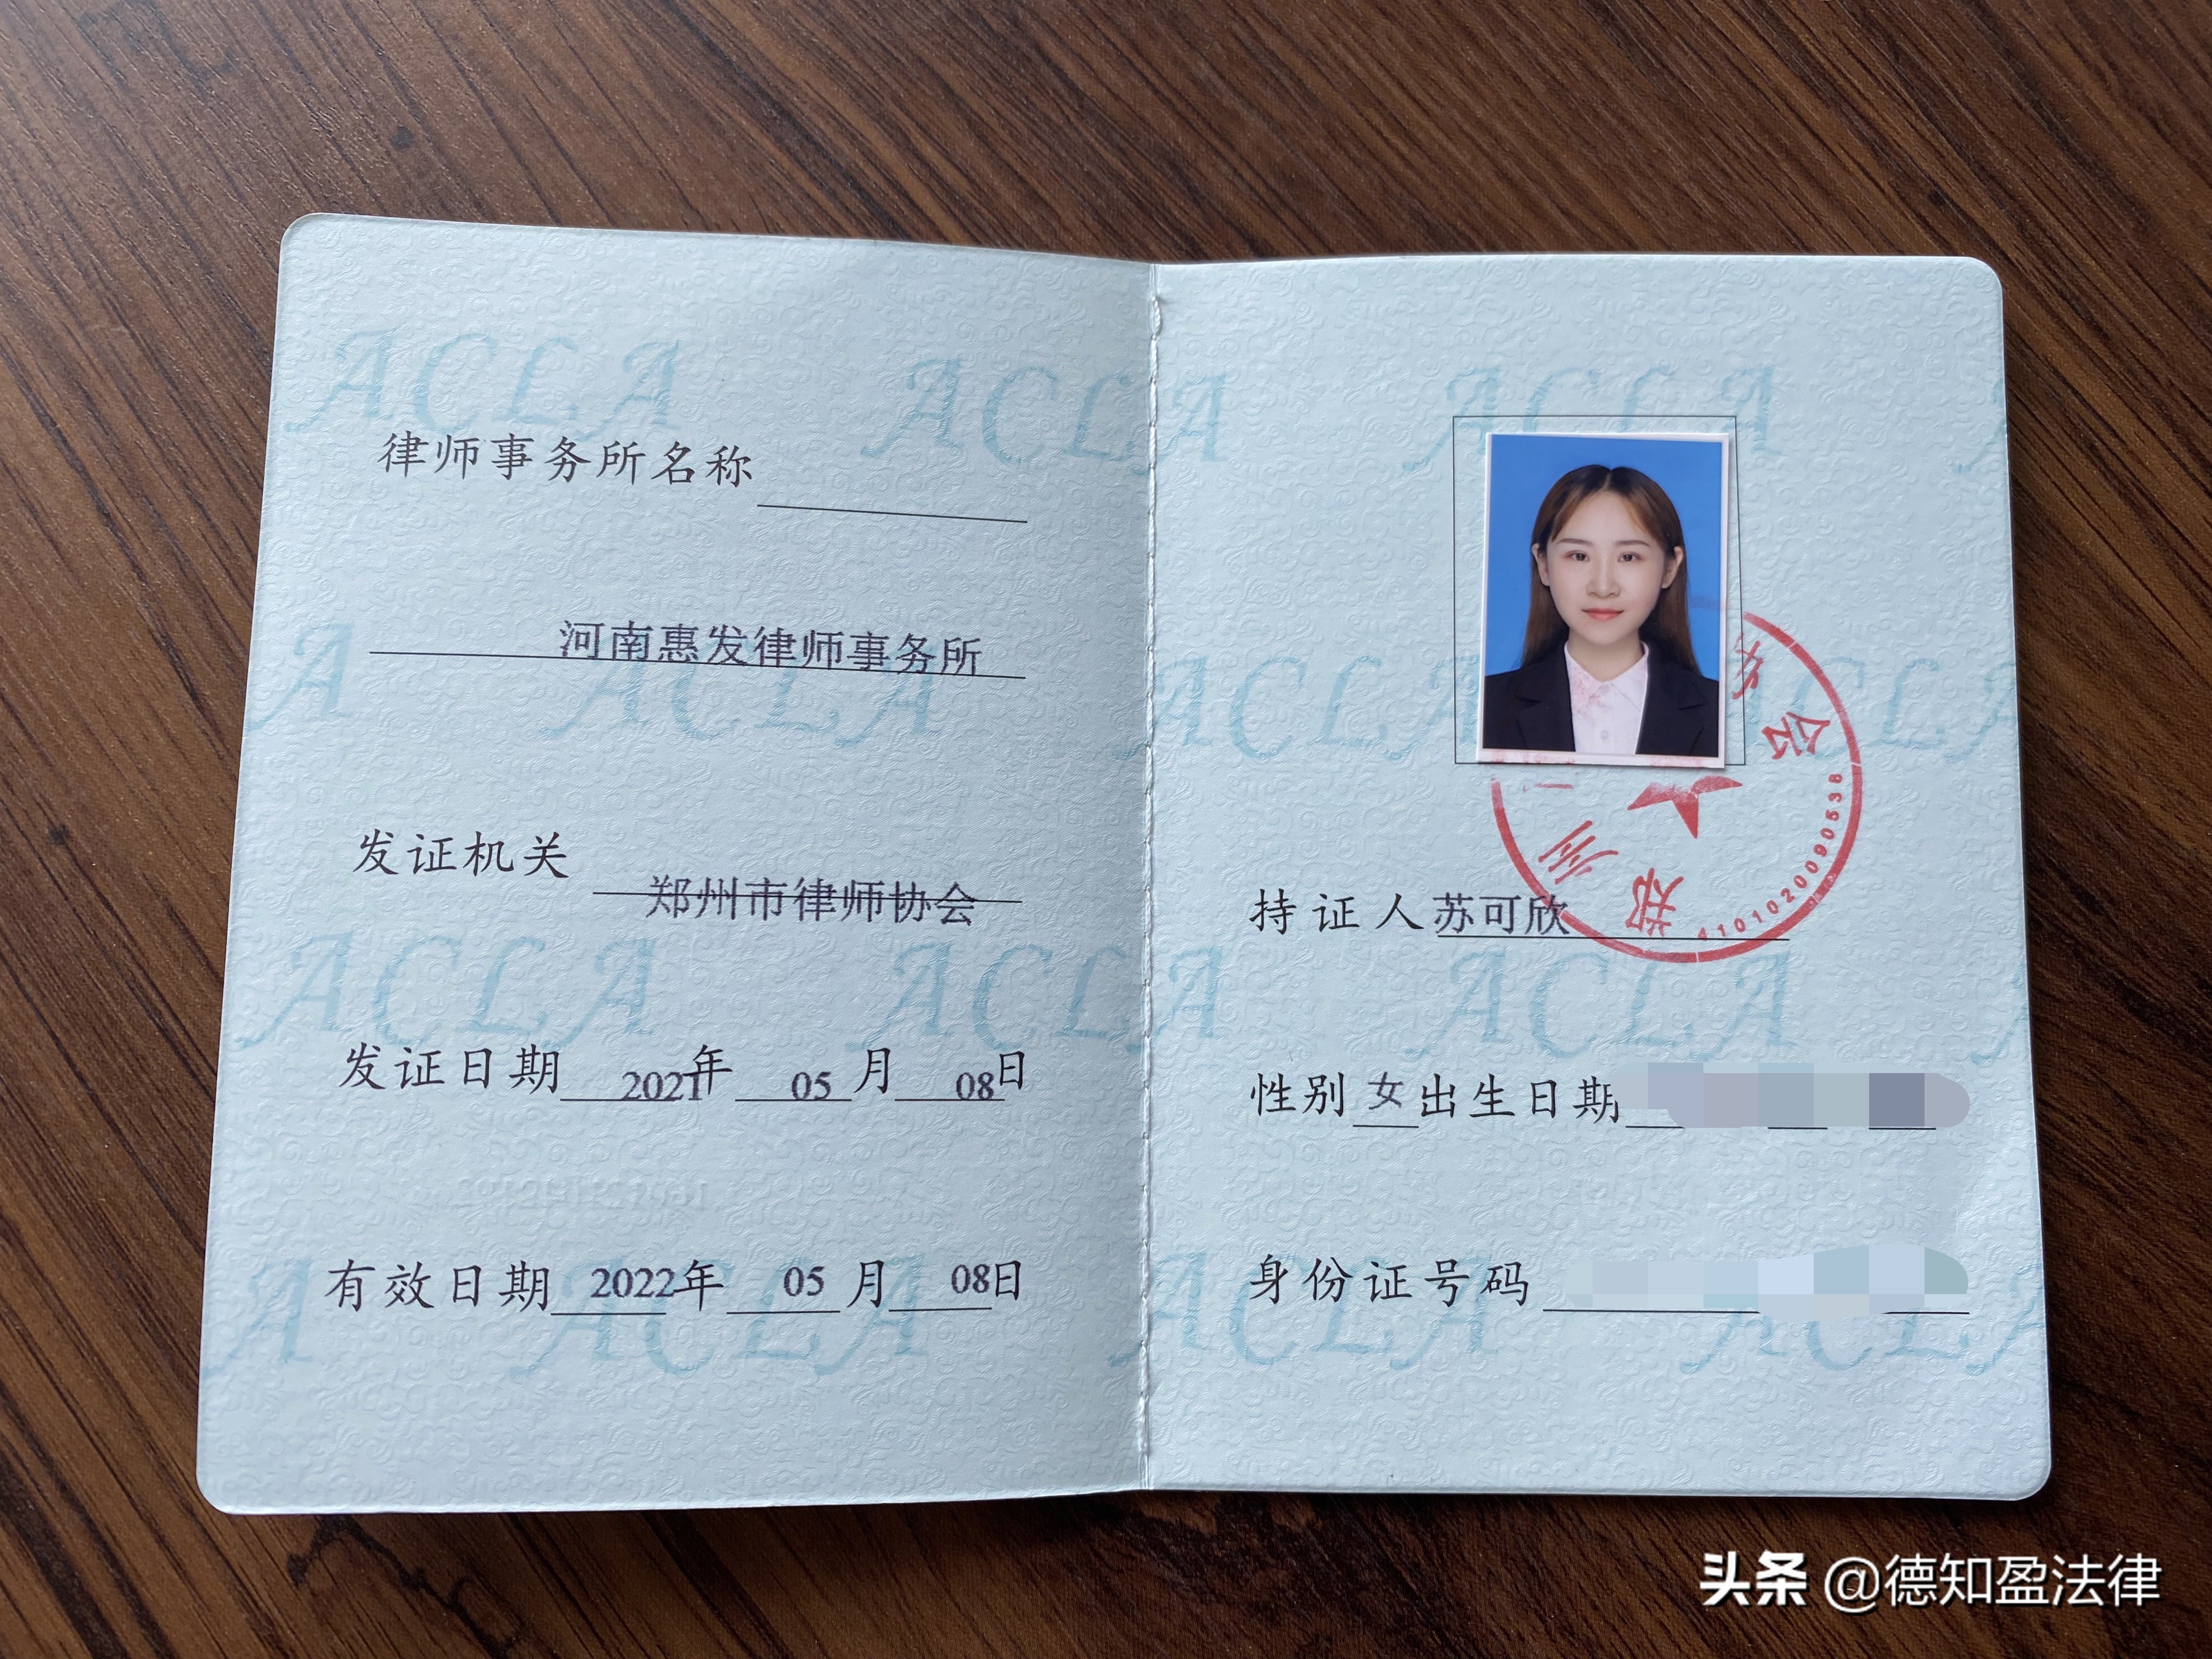 ACLA ACLA
律师事务所名称
河南惠发律师事务所
A ACLA
发证机关 郑州市律师协会
ACLA ACLA
发证日期 2021年 05 月 08日
有效日期 2022年 05 月 08日
A ACLA
ACLA
ACLA
会
郑州
4101020090538
持证人苏可欣
ACLA
性别 女 出生日期
身份证号码
ACLA ACLA
头条 @德知盈法律